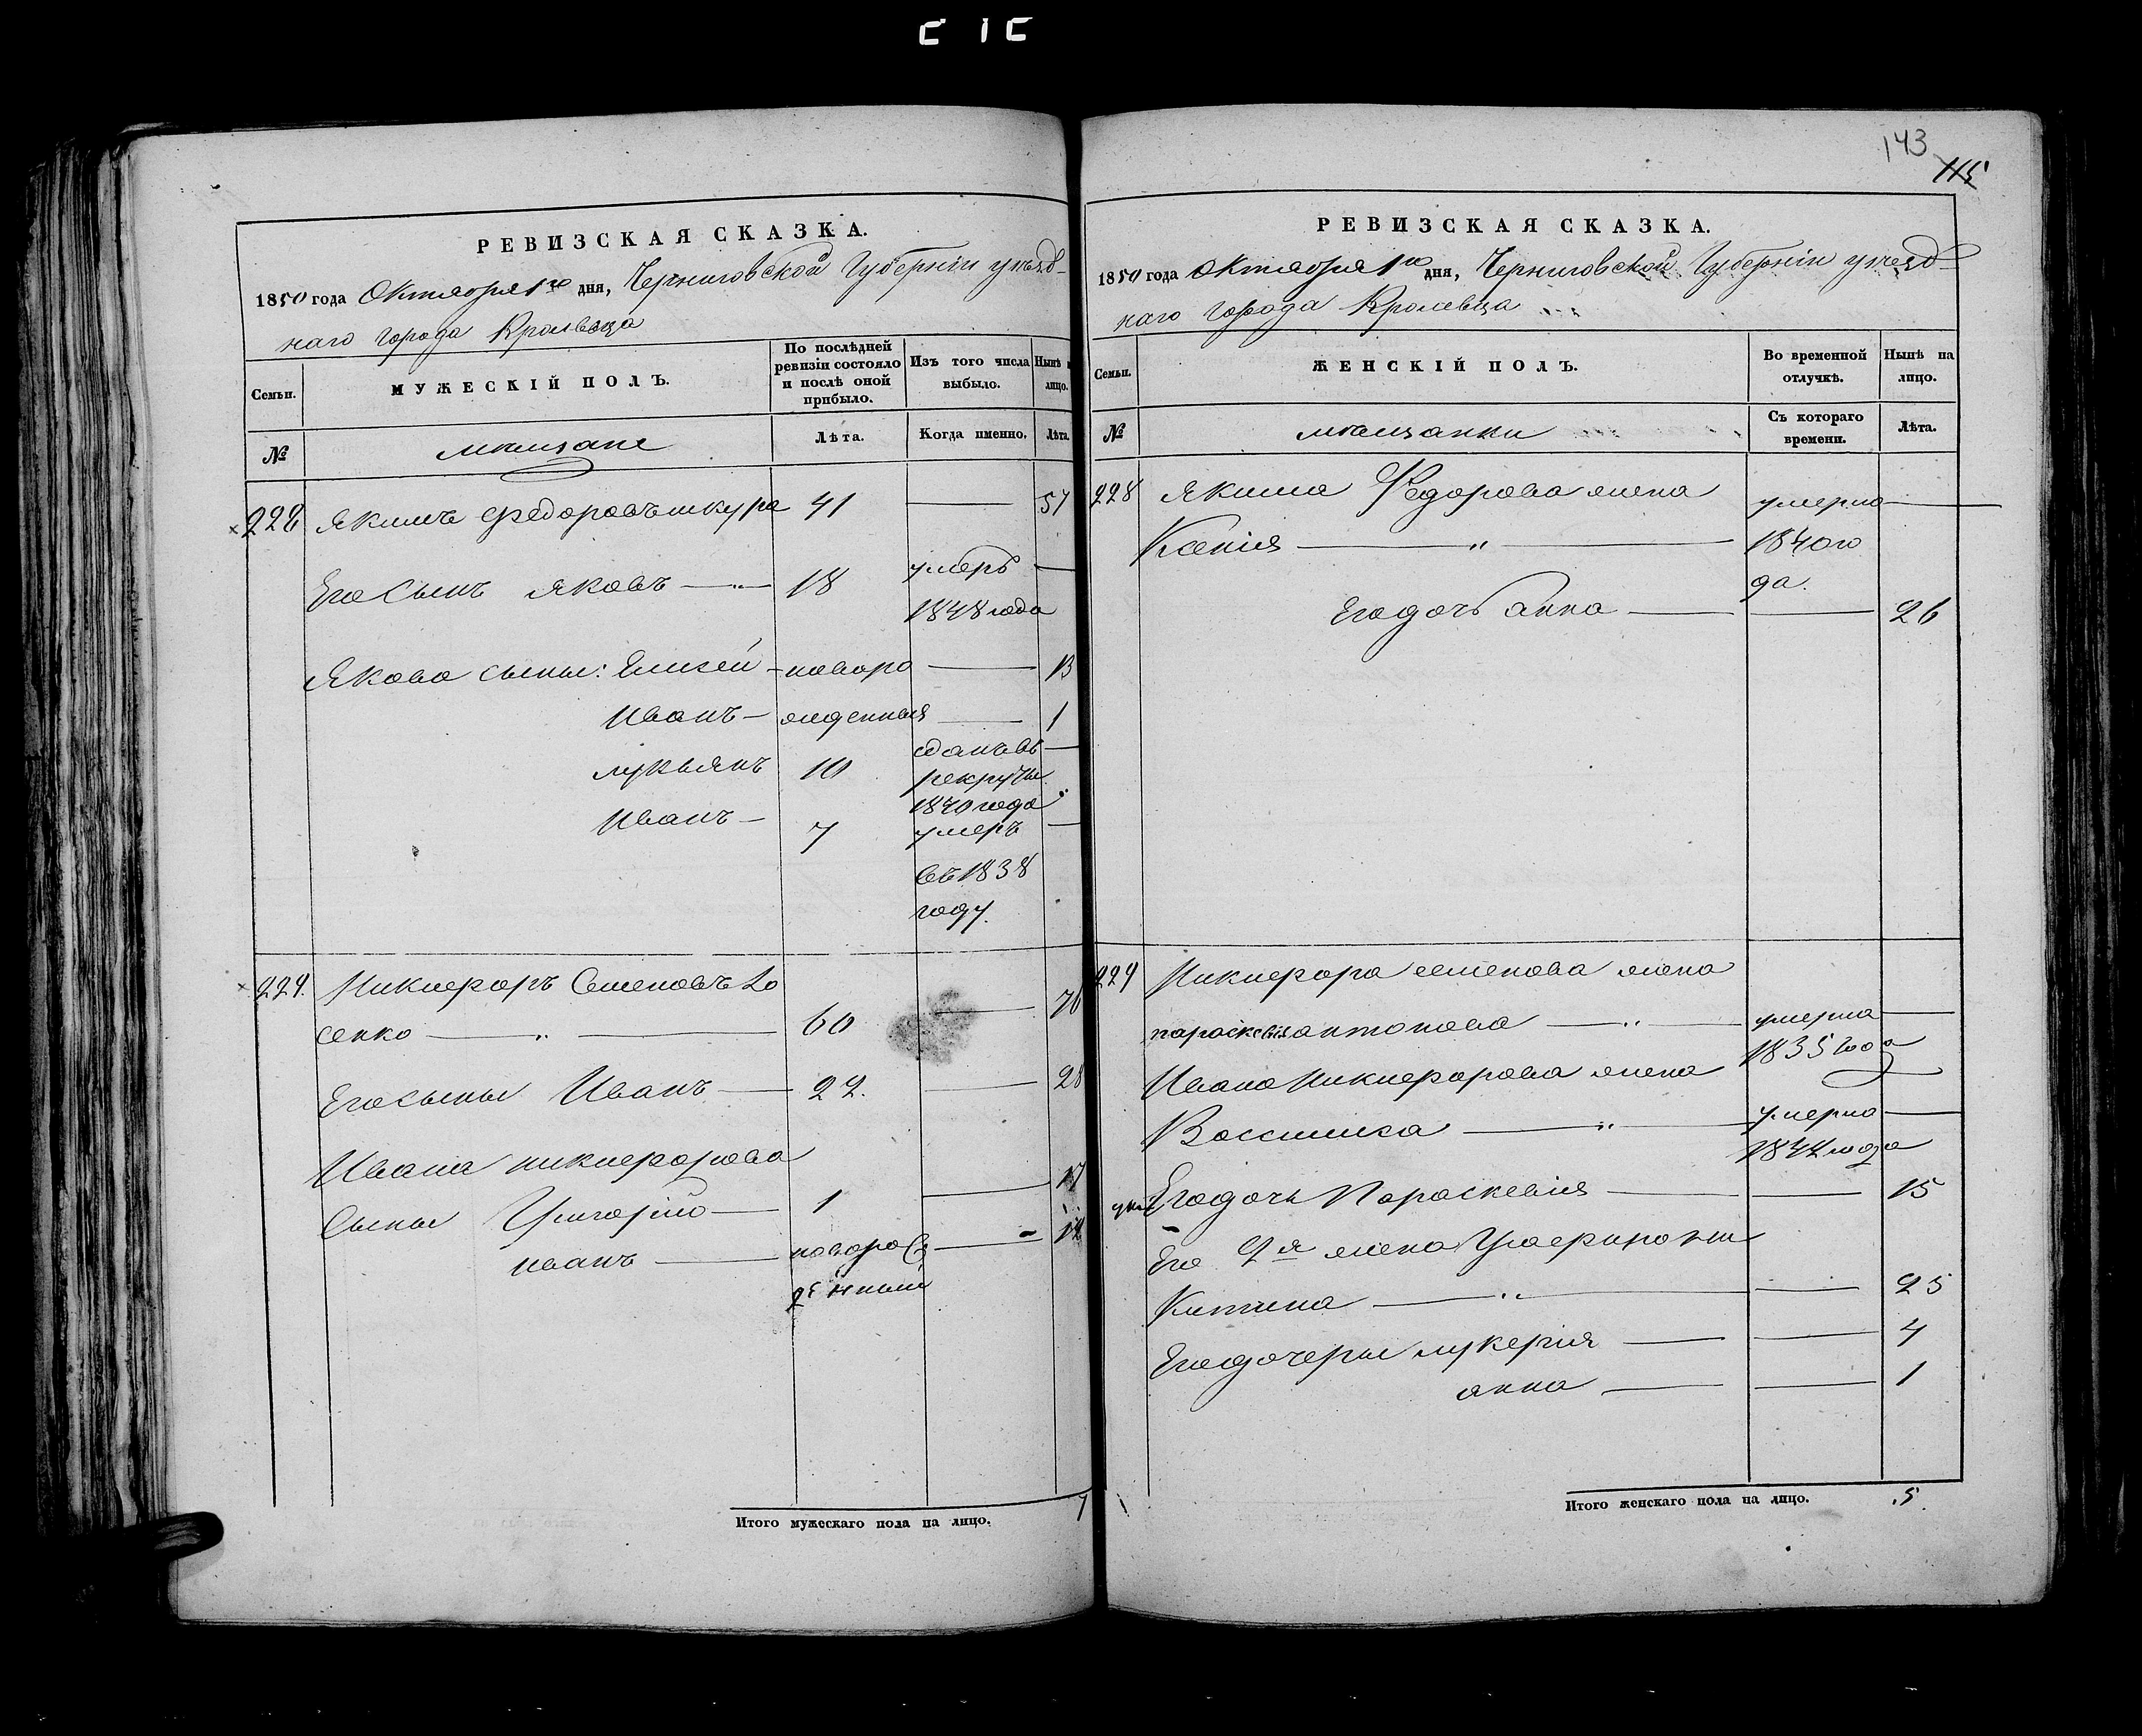 РЕВИЗСКАЯ СКАЗКА.
1850 года Октября 1го дня, Черниговской Губерніи уѣзд-
наго города Кролевца
Семьи.
МУЖЕСКІЙ ПОЛЪ.
По послѣдней ревизіи состояло и послѣ оной прибыло.
Изъ того числа выбыло.
Нынѣ
лицо.
№
мещане
Лѣта.
Когда именно.
Лѣта.
228 Якимъ Федоровъ шкура 41 57
Его Сынъ Яковъ 18 умеръ
1848 года
Якова сыны: Елисей новоро 13
Иванъ жденныя 1
лукьянъ 10 сданъ въ
рекруты
1840 года
Иванъ 7 умеръ
въ 1838
году.
229. Никифоръ Семеновъ Ло
сенко 60 76
Его сыны Иванъ 22. 28
Ивана никифорова
Сыны Григорій 1 17
иванъ новорож 12
денный
Итого мужескаго пола на лицо. 7
143
115
РЕВИЗСКАЯ СКАЗКА.
1850 года Октября 1го дня, Черниговской Губерніи уѣзд-
наго города Кролевца
Семьи.
ЖЕНСКІЙ ПОЛЪ.
Во временной отлучкѣ.
Нынѣ на лицо.
№
мещанки
Съ котораго времени.
Лѣта.
228 Якима Федорова жена умерла
Ксенія 1840 го
да.
Его дочь анна 26
229 Никифора семенова жена
параскевія антонова умерла
1835 года
Ивана Никифорова жена
Вассилиса умерла
1842 года
Его дочь Параскевія 15
Его 2я жена
25
Его дочери лукерія 4
анна 1
Итого женскаго пола на лицо. 5.